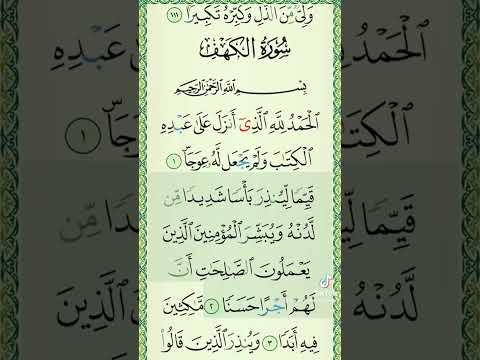 وَلِيٌّ مِّنَ ٱلذُّلِّ وَكَبِّرْهُ تَكْبِيرًا ١١١
سُورَةُ الكَهْفِ
بِسْمِ ٱللَّهِ ٱلرَّحْمَٰنِ ٱلرَّحِيمِ
ٱلْحَمْدُ لِلَّهِ ٱلَّذِىٓ أَنزَلَ عَلَىٰ عَبْدِهِ
ٱلْكِتَٰبَ وَلَمْ يَجْعَل لَّهُۥ عِوَجَاۜ ١
قَيِّمًا لِّيُنذِرَ بَأْسًا شَدِيدًا مِّن
لَّدُنْهُ وَيُبَشِّرَ ٱلْمُؤْمِنِينَ ٱلَّذِينَ
يَعْمَلُونَ ٱلصَّٰلِحَٰتِ أَنَّ
لَهُمْ أَجْرًا حَسَنًا ٢ مَّٰكِثِينَ
فِيهِ أَبَدًا ٣ وَيُنذِرَ ٱلَّذِينَ قَالُوا۟